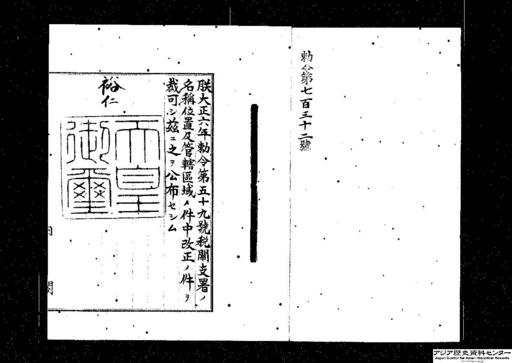 勅令第七百三十二號
朕大正六年勅令第五十九號税關支署ノ
名稱位置及管轄區域ノ件中改正ノ件ヲ
裁可シ茲ニ之ヲ公布セシム
裕仁
天皇
御璽
内閣
アジア歴史資料センター
Japan Center for Asian Historical Records